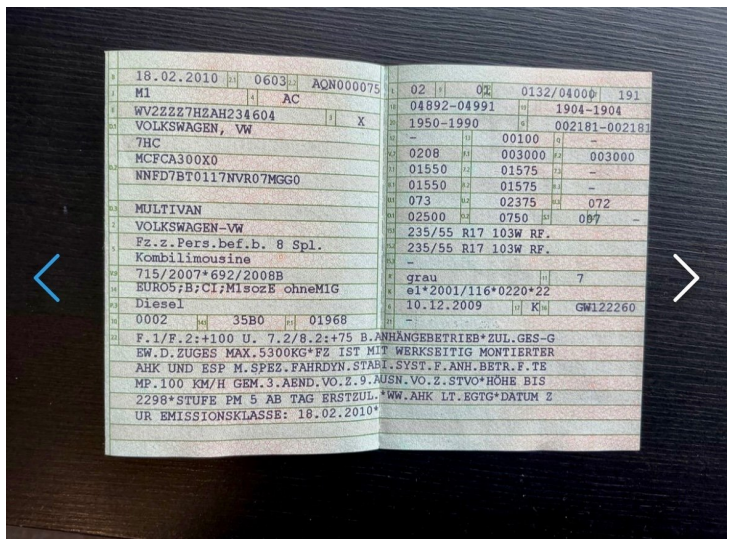 18.02.2010 0603 AQN000075
M1 AC
WV2ZZZ7HZAH234604 X
VOLKSWAGEN, VW
7HC
MCFCA300X0
NNFD7BT0117NVR07MGG0
MULTIVAN
VOLKSWAGEN-VW
Fz.z.Pers.bef.b. 8 Spl.
Kombilimousine
715/2007*692/2008B
EURO5;B;CI;M1sozE ohneM1G
Diesel
0002 35B0 01968
02 0132/04000 191
04892-04991 1904-1904
1950-1990 002181-002181
- 00100 -
0208 003000 003000
01550 01575 -
01550 01575 -
073 02375 072
02500 0750 -
235/55 R17 103W RF.
235/55 R17 103W RF.
-
grau 7
e1*2001/116*0220*22
10.12.2009 K GW122260
-
F.1/F.2:+100 U. 7.2/8.2:+75 B.ANHÄNGEBETRIEB*ZUL.GES-G
EW.D.ZUGES MAX.5300KG*FZ IST MIT WERKSEITIG MONTIERTER
AHK UND ESP M.SPEZ.FAHRDYN.STABI.SYST.F.ANH.BETR.F.TE
MP.100 KM/H GEM.3.AEND.VO.Z.9.AUSN.VO.Z.STVO*HÖHE BIS
2298*STUFE PM 5 AB TAG ERSTZUL.*WW.AHK LT.EGTG*DATUM Z
UR EMISSIONSKLASSE: 18.02.2010*